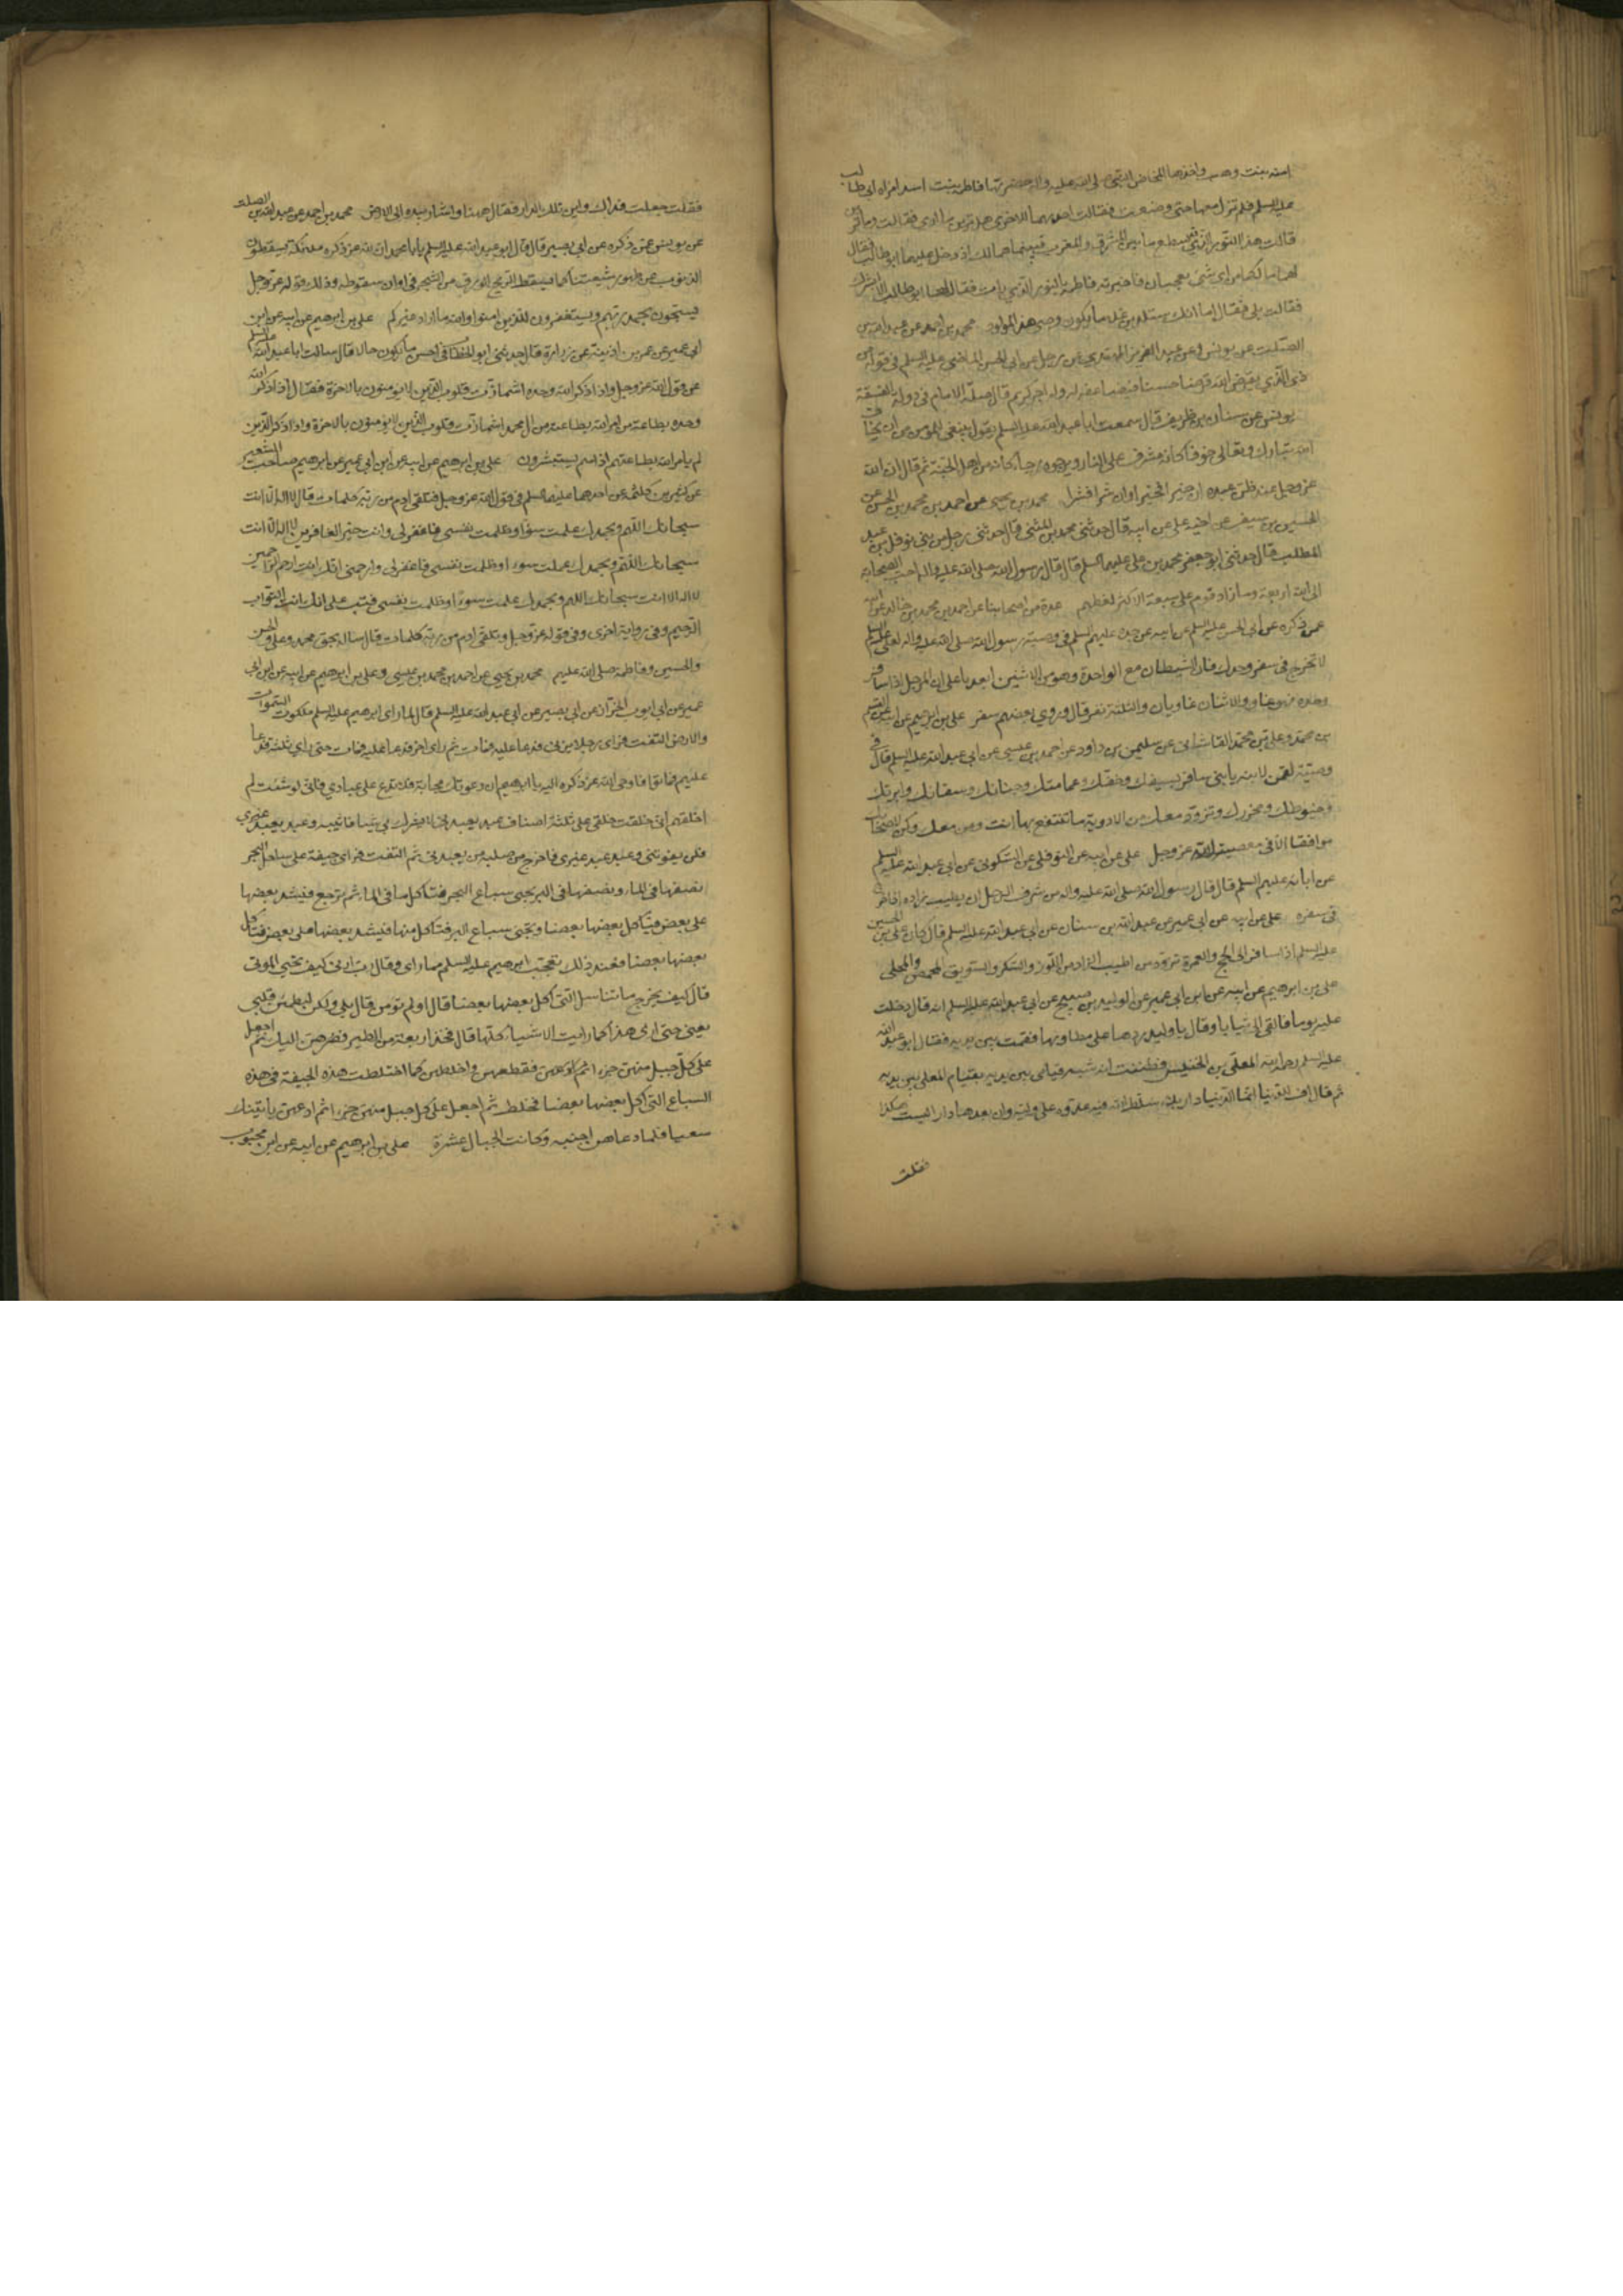 امنه بنت وهب واخذها المخاض بالنبي صلى الله عليه واله حضرتها فاطمة بنت اسد امراه ابي طالب
عليه السلم فلم تزل معها حتى وضعت فقالت احديهما للاخرى هل ترين ما ارى فقالت وما ترين
قالت هذا النور الذي قد سطع ما بين المشرق والمغرب فبينما هما كذلك اذ دخل عليهما ابو طالب فقال
لهما ما لكما من اى شى تعجبان فاخبرته فاطمة بالنور الذي رات فقال لها ابو طالب الا ابشرك
فقالت بلى فقال اما انك ستلدين غلاما يكون وصي هذا المولود محمد بن احمد عن عبد الله بن
الصلت عن يونس وعن عبد العزيز المهتدي عن رجل عن ابي الحسن الماضي عليه السلم في قوله من
ذى الذي يقرض الله قرضا حسنا فيضاعفه له وله اجر كريم قال صلة الامام في دولة الفسقة
يونس عن سنان بن ظريف قال سمعت ابا عبد الله عليه السلم يقول ينبغي للمؤمن ان يخاف
الله تبارك وتعالى خوفا كانه مشرف على النار ويرجوه رجاء كانه من اهل الجنة ثم قال ان الله
عز وجل عند ظن عبده ان خيرا فخيرا وان شرا فشرا محمد بن يحيى عن احمد بن محمد بن الحسن عن
الحسين بن سيف عن اخيه علي عن ابيه قال حدثني محمد بن المثنى قال حدثني رجل من بني نوفل بن عبد
المطلب قال حدثني ابو جعفر محمد بن علي عليهما السلم قال قال رسول الله صلى الله عليه واله احب الصحابة
الى الله اربعة وما زاد قوم على سبعة الا كثر لغطهم عدة من اصحابنا عن احمد بن محمد بن خالد عن ابيه
عمن ذكره عن ابي الحسن عليه السلم عن ابيه عن جده عليهم السلم في وصية رسول الله صلى الله عليه واله لعلي عليه السلم
لا تخرج في سفر وحدك فان الشيطان مع الواحد وهو من الاثنين ابعد يا علي ان الرجل اذا سافر
وحده فهو غاو والاثنان غاويان والثلثة نفر قال وروى بعضهم سفر علي بن ابرهيم عن ابيه عن القسم
بن محمد وعلي بن محمد القاشاني عن سليمن بن داود عن احمد بن عيسى عن ابي عبد الله عليه السلم قال في
وصية لقمن لابنه يا بني سافر بسيفك وخفك وعمامتك وخبائك وسقائك وابرتك
وخيوطك ومخرزك وتزود معك من الادوية ما تنتفع بها انت ومن معك وكن لاصحابك
موافقا الا في معصية الله عز وجل علي عن ابيه عن النوفلي عن السكوني عن ابي عبد الله عليه السلم
عن ابائه عليهم السلم قال قال رسول الله صلى الله عليه واله من شرف الرجل ان يطيب زاده اذا خرج
في سفره علي عن ابيه عن ابي عمير عن عبد الله بن سنان عن ابي عبد الله عليه السلم قال كان علي بن الحسين
عليه السلم اذا سافر الى الحج والعمرة تزود من اطيب الزاد من اللوز والسكر والسويق المحمض والمحلى
علي بن ابرهيم عن ابيه عن ابن ابي عمير عن الوليد بن صبيح عن ابي عبد الله عليه السلم انه قال دخلت
عليه يوما فالقى الي ثيابا وقال يا وليد ردها على مطاويها فقمت بين يديه فقال ابو عبد الله
عليه السلم رحم الله المعلى بن الخنيس فظننت انه شبه قيامي بين يديه بقيام المعلى بين يديه
ثم قال اف للدنيا انما الدنيا دار بلاء سلط الله فيه عدوه على وليه وان بعدها دارا ليست هكذا
فقلت
فقلت جعلت فداك واين تلك الدار فقال ههنا واشار بيده الى الارض محمد بن احمد عن عبد الله بن الصلت
عن يونس عمن ذكره عن ابي بصير قال قال ابو عبد الله عليه السلم يا با محمد ان لله عز ذكره ملئكة يسقطون
الذنوب عن ظهور شيعتنا كما يسقط الريح الورق من الشجر في اوان سقوطه وذلك قوله عز وجل
يسبحون بحمد ربهم ويستغفرون للذين امنوا والله ما اراد غيركم علي بن ابرهيم عن ابيه عن ابن
ابي عمير عن عمر بن اذينة عن زرارة قال حدثني ابو الخطاب في احسن ما يكون حالا قال سالت ابا عبد الله عليه السلم
عن قول الله عز وجل واذا ذكر الله وحده اشمازت قلوب الذين لا يومنون بالاخرة فقال اذا ذكر الله
وحده بطاعة من امر الله بطاعته من ال محمد اشمازت قلوب الذين لا يومنون بالاخرة واذا ذكر الذين
لم يامر الله بطاعتهم اذا هم يستبشرون علي بن ابرهيم عن ابيه عن ابن ابي عمير عن ابرهيم صاحب الشعير
عن كثير بن كلثمه عن احدهما عليهما السلم في قول الله عز وجل فتلقى ادم من ربه كلمات قال لا اله الا انت
سبحانك اللهم وبحمدك عملت سوءا وظلمت نفسي فاغفر لي وانت خير الغافرين لا اله الا انت
سبحانك اللهم وبحمدك عملت سوءا وظلمت نفسي فاغفر لي وارحمني انك انت ارحم الراحمين
لا اله الا انت سبحانك اللهم وبحمدك عملت سوءا وظلمت نفسي فتب علي انك انت التواب
الرحيم وفي رواية اخرى وفي قوله عز وجل وتلقى ادم من ربه كلمات قال ساله بحق محمد وعلي والحسن
والحسين وفاطمة صلى الله عليهم محمد بن يحيى عن احمد بن محمد بن عيسى وعلي بن ابرهيم عن ابيه عن ابن ابي
عمير عن ابي ايوب الخزاز عن ابي بصير عن ابي عبد الله عليه السلم قال لما راى ابرهيم عليه السلم ملكوت السموات
والارض التفت فراى رجلا يزني فدعا عليه فمات ثم راى اخر فدعا عليه فمات حتى راى ثلثة فدعا
عليهم فماتوا فاوحى الله عز ذكره اليه يا ابرهيم ان دعوتك مجابة فلا تدع على عبادي فاني لو شئت لم
اخلقهم اني خلقت خلقي على ثلثة اصناف عبد يعبدني لا يشرك بي شيئا فاثيبه وعبد يعبد غيري
فلن يفوتني وعبد عبد غيري فاخرج من صلبه من يعبدني ثم التفت فراى جيفة على ساحل البحر
نصفها في الماء ونصفها في البر يجيى سباع البحر فتاكل ما في الماء ثم ترجع فيشد بعضها
على بعض فياكل بعضها بعضا ويجيى سباع البر فتاكل منها فيشد بعضها على بعض فتاكل
بعضها بعضا فعند ذلك تعجب ابرهيم عليه السلم مما راى وقال رب ارني كيف تحيي الموتى
قال كيف يخرج ما تناسل التي اكل بعضها بعضا قال اولم تومن قال بلى ولكن ليطمئن قلبي
يعني حتى ارى هذا كما رايت الاشياء كلها قال فخذ اربعة من الطير فصرهن اليك ثم اجعل
على كل جبل منهن جزءا ثم ادعهن فقطعهن واخلطهن كما اختلطت هذه الجيفة في هذه
السباع التي اكل بعضها بعضا فخلط ثم اجعل على كل جبل منهن جزءا ثم ادعهن ياتينك
سعيا فلما دعاهن اجبنه وكانت الجبال عشرة علي بن ابرهيم عن ابيه عن ابن محبوب